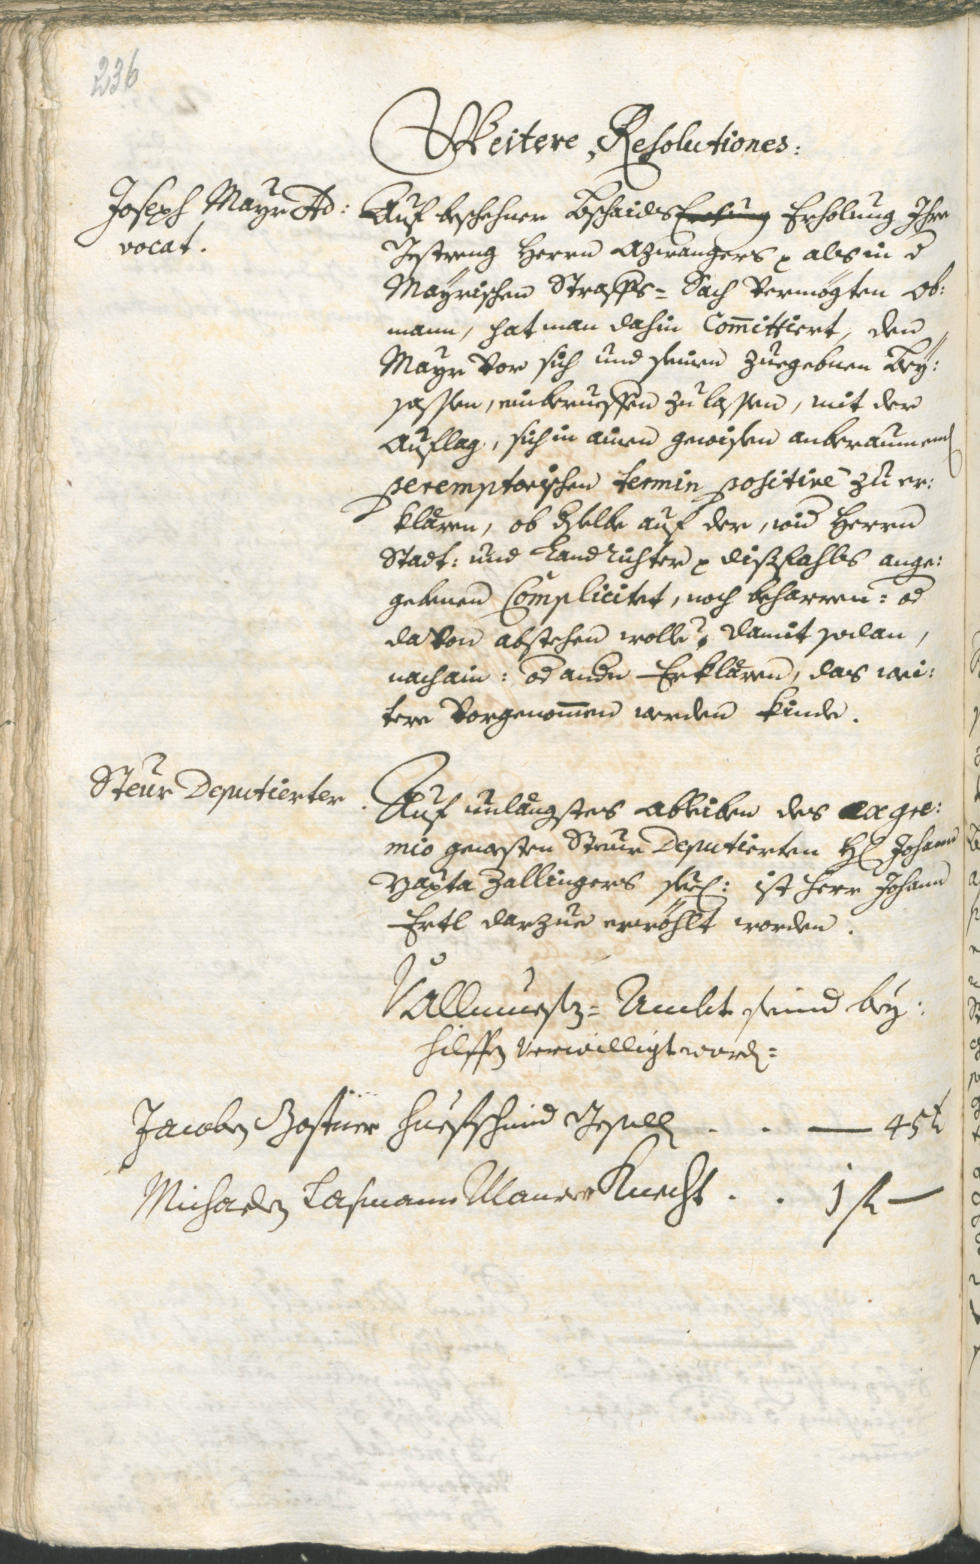 236
Weitere Resolutiones:
Joseph Mayr Ad:
vocat.
Auf beschehner Bschaidts Erholung Ihro
Gestreng Herrn Azwangers als in d
Mayrischen Straffs= Sach vermögten Ob:
mann, hat man dahin Committiert, den
Mayr vor sich und seinen zuegebnen Bey:
sässen, einberueffen zu lassen, mit der
Auflag, sich in ainen gewissen anberaumend
peremptorischen termin positive zu er:
klären, ob dselbe auf der, wid Herrn
Statt: und Landrichter dißfahls ange:
gebenen Complicitet, noch beharren: od
davon abstehen wolle? damit sodan,
nach ain: od andn Erklären, das wei:
tere vorgenommen werden kinde.
Steur Deputierter.
Auf unlängstes ableiben des ex gre:
mio gewesten Steur Deputierten H Johann
Bapta Zallingers seel: ist Herr Johann
Ertl darzue erwöhlt worden.
Allmueß= Ambt seind bey:
hilffen verwilligt word:
Jacoben Gostner Huefschmid Gesell . . — 45 k
Michaeln Lasmann Maurer Knecht . . 1 fl —